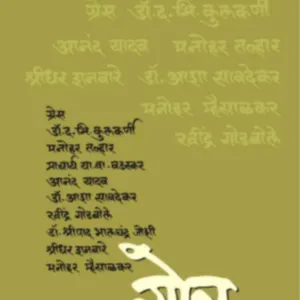 ग्रेस डॉ.द.भि.कुलकर्णी
आनंद यादव मनोहर तल्हार
श्रीधर शनवारे डॉ.आशा सावदेकर
मनोहर म्हैसाळकर
रवींद्र गोडबोले
ग्रेस
डॉ.द.भि.कुलकर्णी
मनोहर तल्हार
प्राचार्य
आनंद यादव
डॉ.आशा सावदेकर
रवींद्र गोडबोले
डॉ.श्रीपाद भालचंद्र जोशी
श्रीधर शनवारे
मनोहर म्हैसाळकर